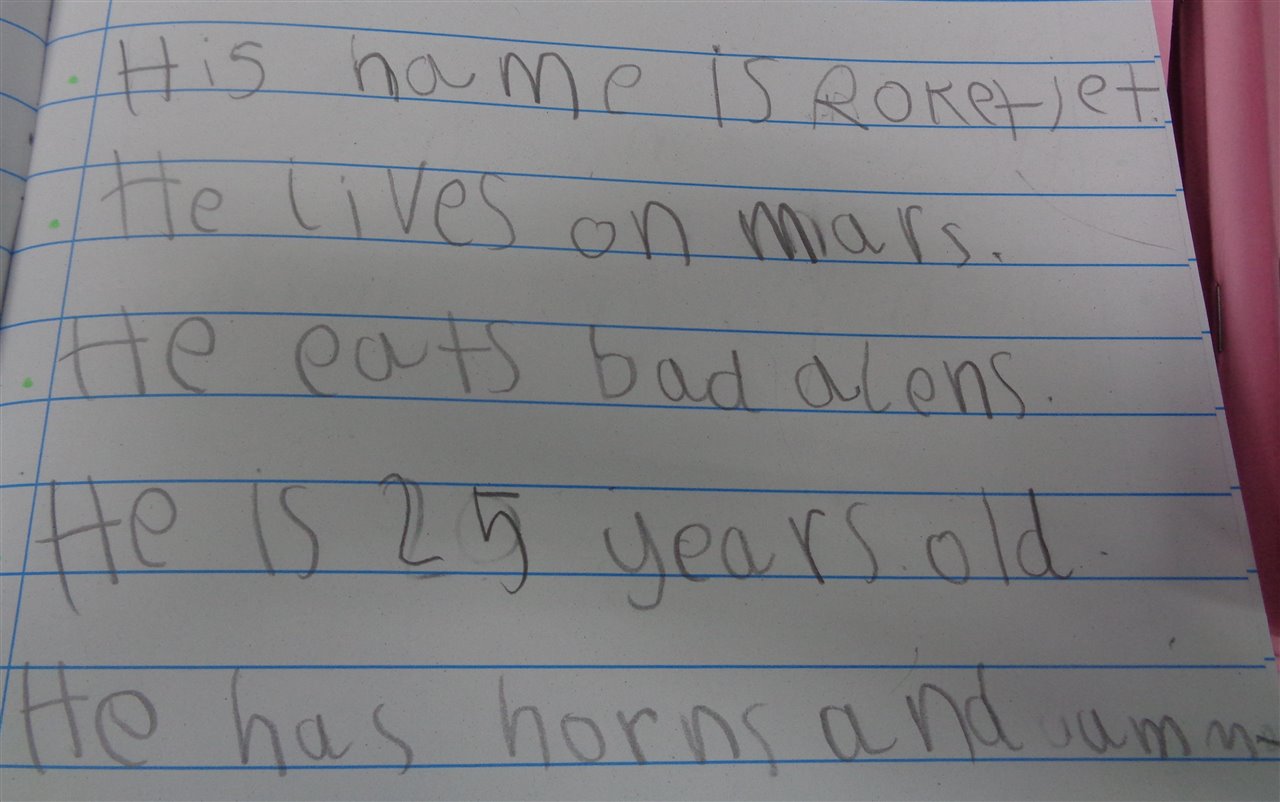 His name is Roketjet.
He lives on mars.
He eats bad alens.
He is 25 years old.
He has horns and